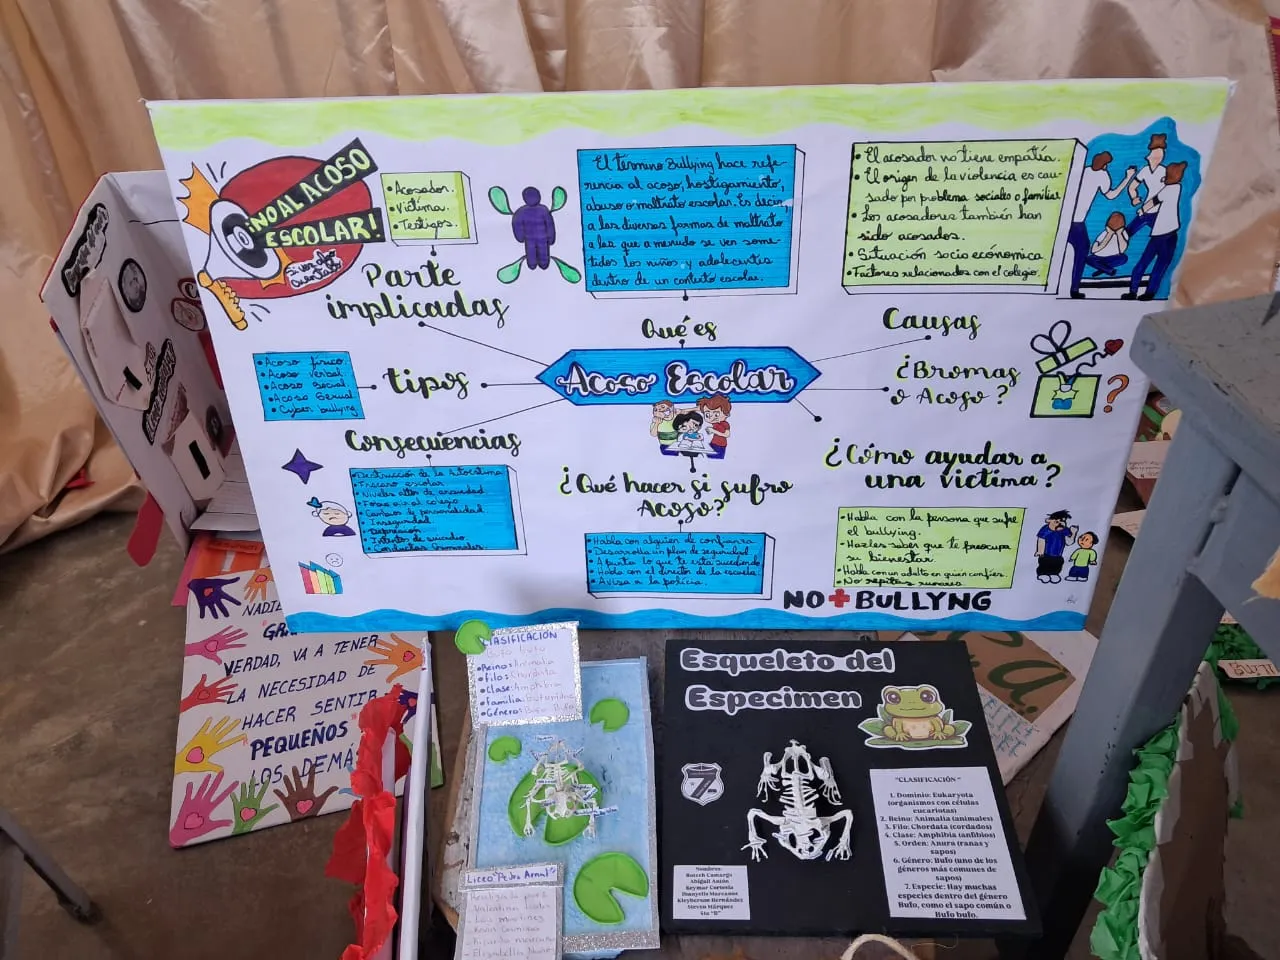 ¡NO AL ACOSO
ESCOLAR!
Si ves algo
Cuentalo
• Acosador.
• Víctima.
• Testigos.
Parte
implicadas
El término Bullying hace refe-
rencia al acoso, hostigamiento,
abuso o maltrato escolar. Es decir,
a las diversas formas de maltrato
a las que a menudo se ven some-
tidos los niños y adolecentes
dentro de un contexto escolar.
Qué es
• El acosador no tiene empatía.
• El origen de la violencia es cau-
sado por problema sociales o familiar
• Los acosadores también han
sido acosados.
• Situación socio económica.
• Factores relacionados con el colegio.
Causas
Acoso Escolar
¿Bromas
o Acoso?
?
tipos
• Acoso físico.
• Acoso verbal.
• Acoso Social.
• Acoso Sexual.
• Cyber bullying
Consecuencias
• Destrucción de la Autoestima
• Fracaso escolar
• Niveles altos de ansiedad
• Cambios de personalidad
• Inseguridad
• Depresión
• Intento de suicidio.
¿Qué hacer si sufro
Acoso?
• Habla con alguien de confianza.
• Desarrolla un plan de seguridad
• Apunta lo que te esta sucediendo
• Habla con el director de la escuela.
• Avisa a la policía.
¿Cómo ayudar a
una victima?
• Habla con la persona que sufre
el bullying.
• Hazles saber que te preocupa
su bienestar
• Habla con un adulto en quien confíes.
• No repitas rumores
NO + BULLYNG
NADIE
GRA
VERDAD, VA A TENER
LA NECESIDAD DE
HACER SENTIR
PEQUEÑOS
LOS DEMÁ
CLASIFICACIÓN
Bufo bufo
• Reino: Animalia
• Filo: Chordata
• Clase: Amphibia
• Familia: Bufonidae
• Género: Bufo Bufo
Liceo "Pedro Arnal"
Realizado por:
Esqueleto del
Especimen
7
"CLASIFICACIÓN"
1. Dominio: Eukaryota
(organismos con células
eucariotas)
2. Reino: Animalia (animales)
3. Filo: Chordata (cordados)
4. Clase: Amphibia (anfibios)
5. Orden: Anura (ranas y
sapos)
6. Género: Bufo (uno de los
géneros más comunes de
sapos)
7. Especie: Hay muchas
especies dentro del género
Bufo, como el sapo común o
Bufo bufo.
Nombres:
Camargo
Abigail Antón
Keymar Cortesía
Marcanos
Kleyberson Hernández
Steven Márquez
5to "B"